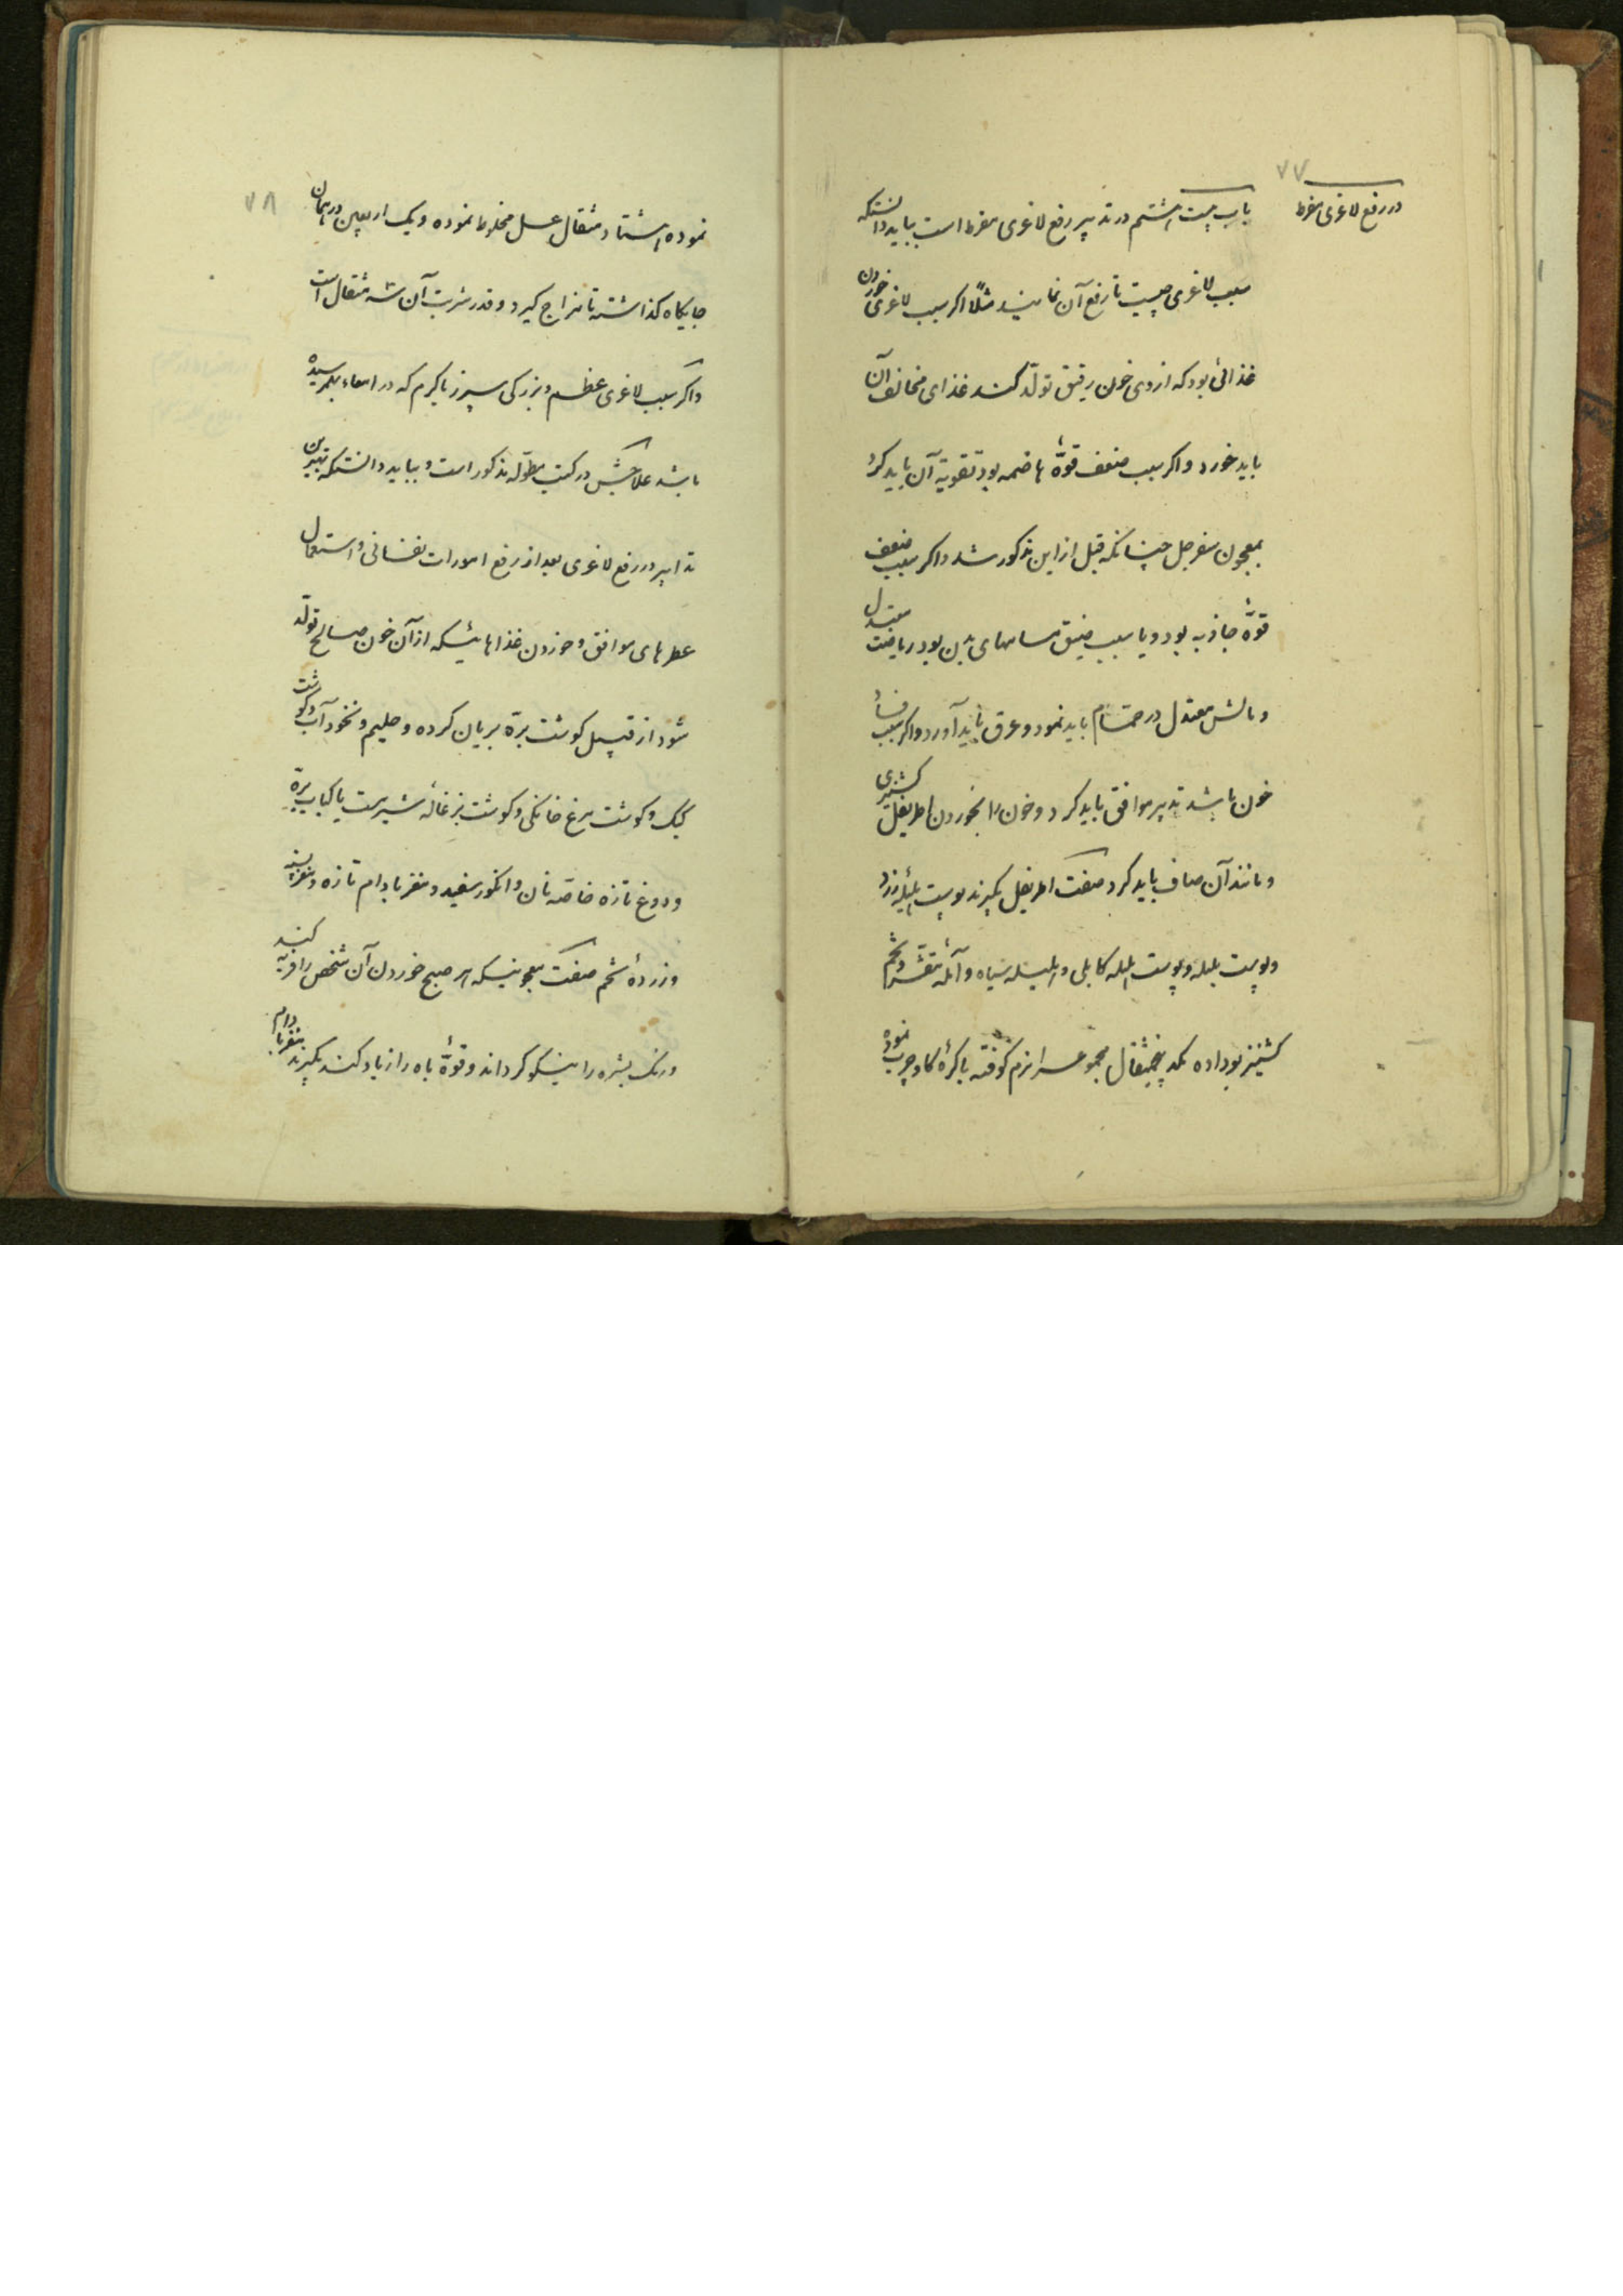 ۷۷
در رفع لاغری مفرط
باب بیست هشتم در تدبیر رفع لاغری مفرط است بباید دانستکه
سبب لاغری چیست تا رفع آن نمایند مثلاً اکر سبب لاغری خوردن
غذائی بود که از وی خون رقیق تولّد کند غذای مخالف آن
باید خورد و اکر سبب ضعف قوّهٔ هاضمه بود تقویة آن باید کرد
بمعجون سفرجل چنانکه قبل از این مذکور شد و اکر سبب ضعف
قوّهٔ جاذبه بود و یا سبب ضیق مسامهای بدن بود ریاضت معتدل
و مالش معتدل در حمّام باید نمود و عرق باید آورد و اکر سبب فساد
خون باشد تدبیر موافق باید کرد و خون را بخوردن اطریفل کشنیزی
و مانند آن صاف باید کرد صفت اطریفل بکیرند پوست هلیلهٔ زرد
و پوست بلیله و پوست هلیله کابلی و هلیله سیاه و آملهٔ مقشّر و تخم
کشنیز بوداده یکد پنجمثقال مجموعسرا نرم کوفته با کرهٔ کاو چرب نموده
۷۸
نموده هشتاد مثقال عسل مخلوط نموده و یک اربعین در همان
جایکاه کذاشته تا مزاج کیرد و قدر شربت آن سه مثقال است
و اکر سبب لاغری عظم و بزرکی سپرز یا کرم که در امعاء بهمرسیده
باشد علاجش در کتب مطوّله مذکور است و بباید دانستکه بهترین
تدابیر در رفع لاغری بعد از رفع امورات نفسانی و استعمال
عطرهای موافق و خوردن غذاهائیسکه از آن خون صالح تولّد
شود از قبیل کوشت برّه بریان کرده و حلیم و نخود آب و کوشت
کبک و کوشت مرغ خانکی و کوشت بزغالهٔ شیرمست یا کباب برّه
و دوغ تازه خاصّه نان و انکور سفید و مغز بادام تازه و مغز پسته
و زردهٔ تخم صفت معجونیسکه هر صبح خوردن آن شخص را فربه کند
و رنک بشره را نیکو کرداند و قوّهٔ باه را زیاد کند بکیرند مغز بادام